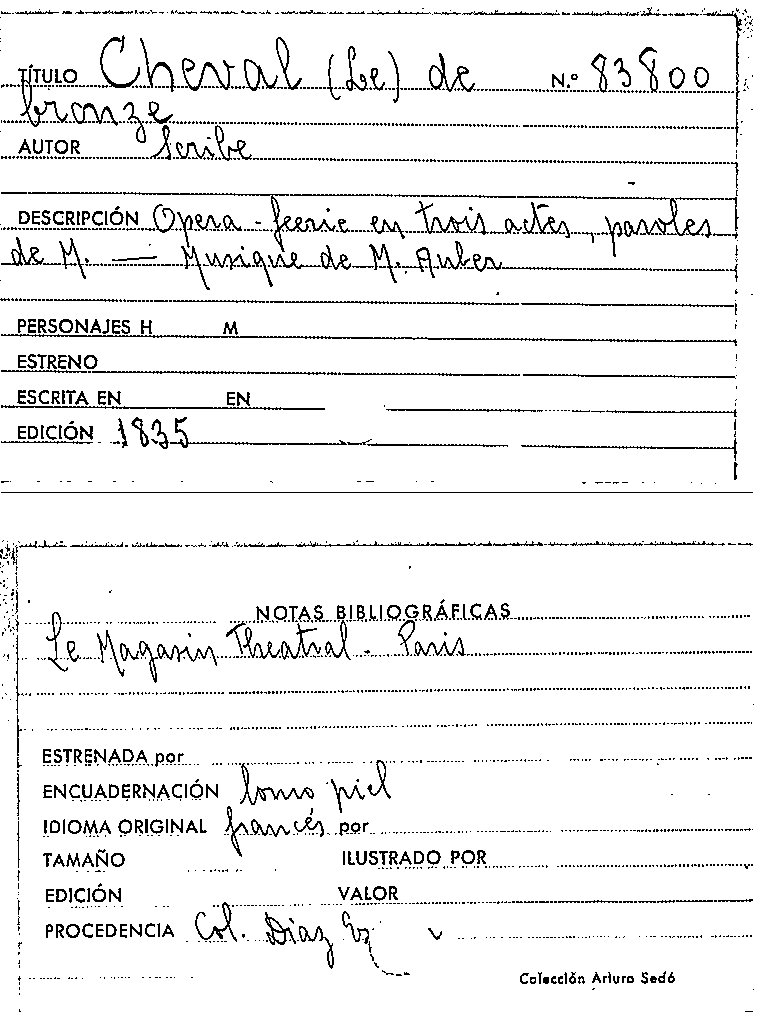 TÍTULO Cheval (Le) de N.º 83800
bronze
AUTOR Scribe
DESCRIPCIÓN Opera-feerie en trois actes, paroles
de M. — Musique de M. Auber
PERSONAJES H M
ESTRENO
ESCRITA EN EN
EDICIÓN 1835
NOTAS BIBLIOGRÁFICAS
Le Magasin Theatral - Paris
ESTRENADA por
ENCUADERNACIÓN lomo piel
IDIOMA ORIGINAL francés por
TAMAÑO ILUSTRADO POR
EDICIÓN VALOR
PROCEDENCIA Col. Díaz
Colección Arturo Sedó